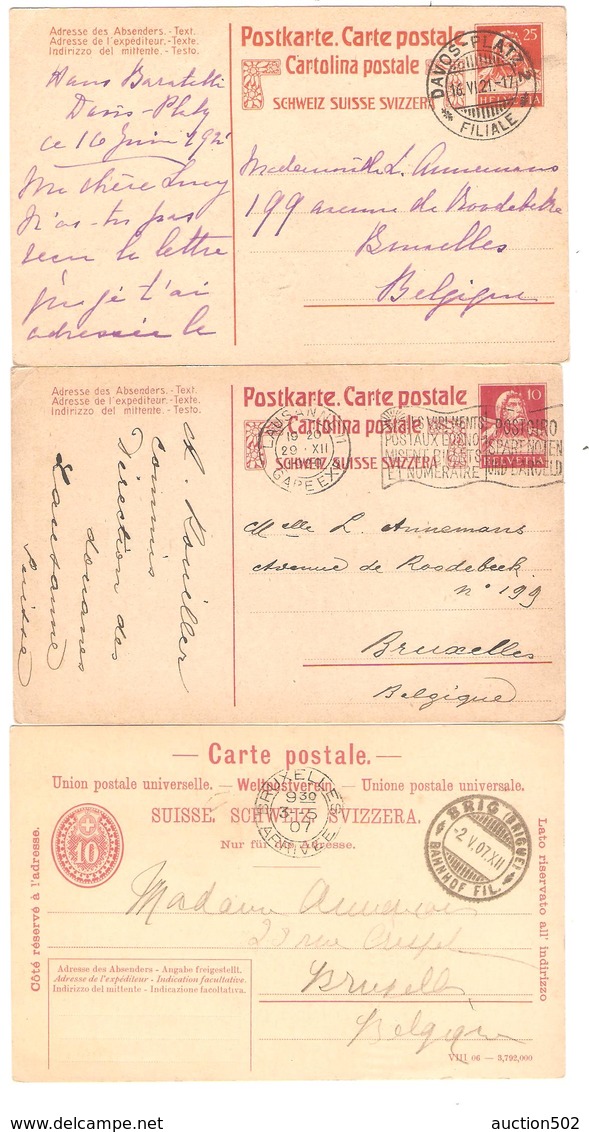 Adresse des Absenders. - Text.
Adresse de l'expéditeur. - Texte.
Indirizzo del mittente. - Testo.
Postkarte. Carte postale
Cartolina postale
SCHWEIZ SUISSE SVIZZERA
25
HELVETIA
DAVOS-PLATZ 2
16.VI.21.-17
FILIALE
Hans
ce 16 Juin 192
Ma chère Lucy
N'as-tu pas
la lettre
que je t'ai
adressée le
Mademoiselle L. Annemans
199 avenue de Roodebeke
Bruxelles
Belgique
Adresse des Absenders. - Text.
Adresse de l'expéditeur. - Texte.
Indirizzo del mittente. - Testo.
Postkarte. Carte postale
Cartolina postale
SCHWEIZ SUISSE SVIZZERA
10
HELVETIA
LAUSANNE 1
19 20
29·XII
EXP. LET.
POSTAUX ECONO-
MISENT BILLETS
ET NUMERAIRE
POSTGIRO
SPART NOTEN
UND BARGELD
commis
Direction des
douanes
Lausanne
Suisse
Melle L. Annemans
Avenue de Roodebeek
n° 199
Bruxelles
Belgique
— Carte postale. —
Union postale universelle. — Weltpostverein. — Unione postale universale.
SUISSE. SCHWEIZ. SVIZZERA.
Nur für die Adresse.
10
Côté réservé à l'adresse.
Lato riservato all' indirizzo
BRUXELLES
9 30
3-5
07
ARRIVÉE
BRIG (BRIGUE)
-2.V.07.XII
BAHNHOF FIL.
Madame
28 rue Crespel
Bruxelles
Belgique
Adresse des Absenders - Angabe freigestellt.
Adresse de l'expéditeur - Indication facultative.
Indirizzo del mittente - Indicazione facoltativa.
VIII 06 — 3,792,000
auction502